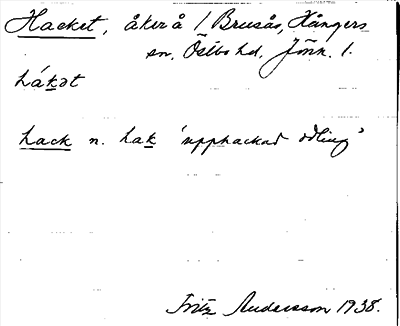 Hacket, åker å / Brusås, Kångers
sn, Östbo hd, Jönk. l.
hákət
hack n. hak 'upphackad odling'
Fritz Andersson 1938.